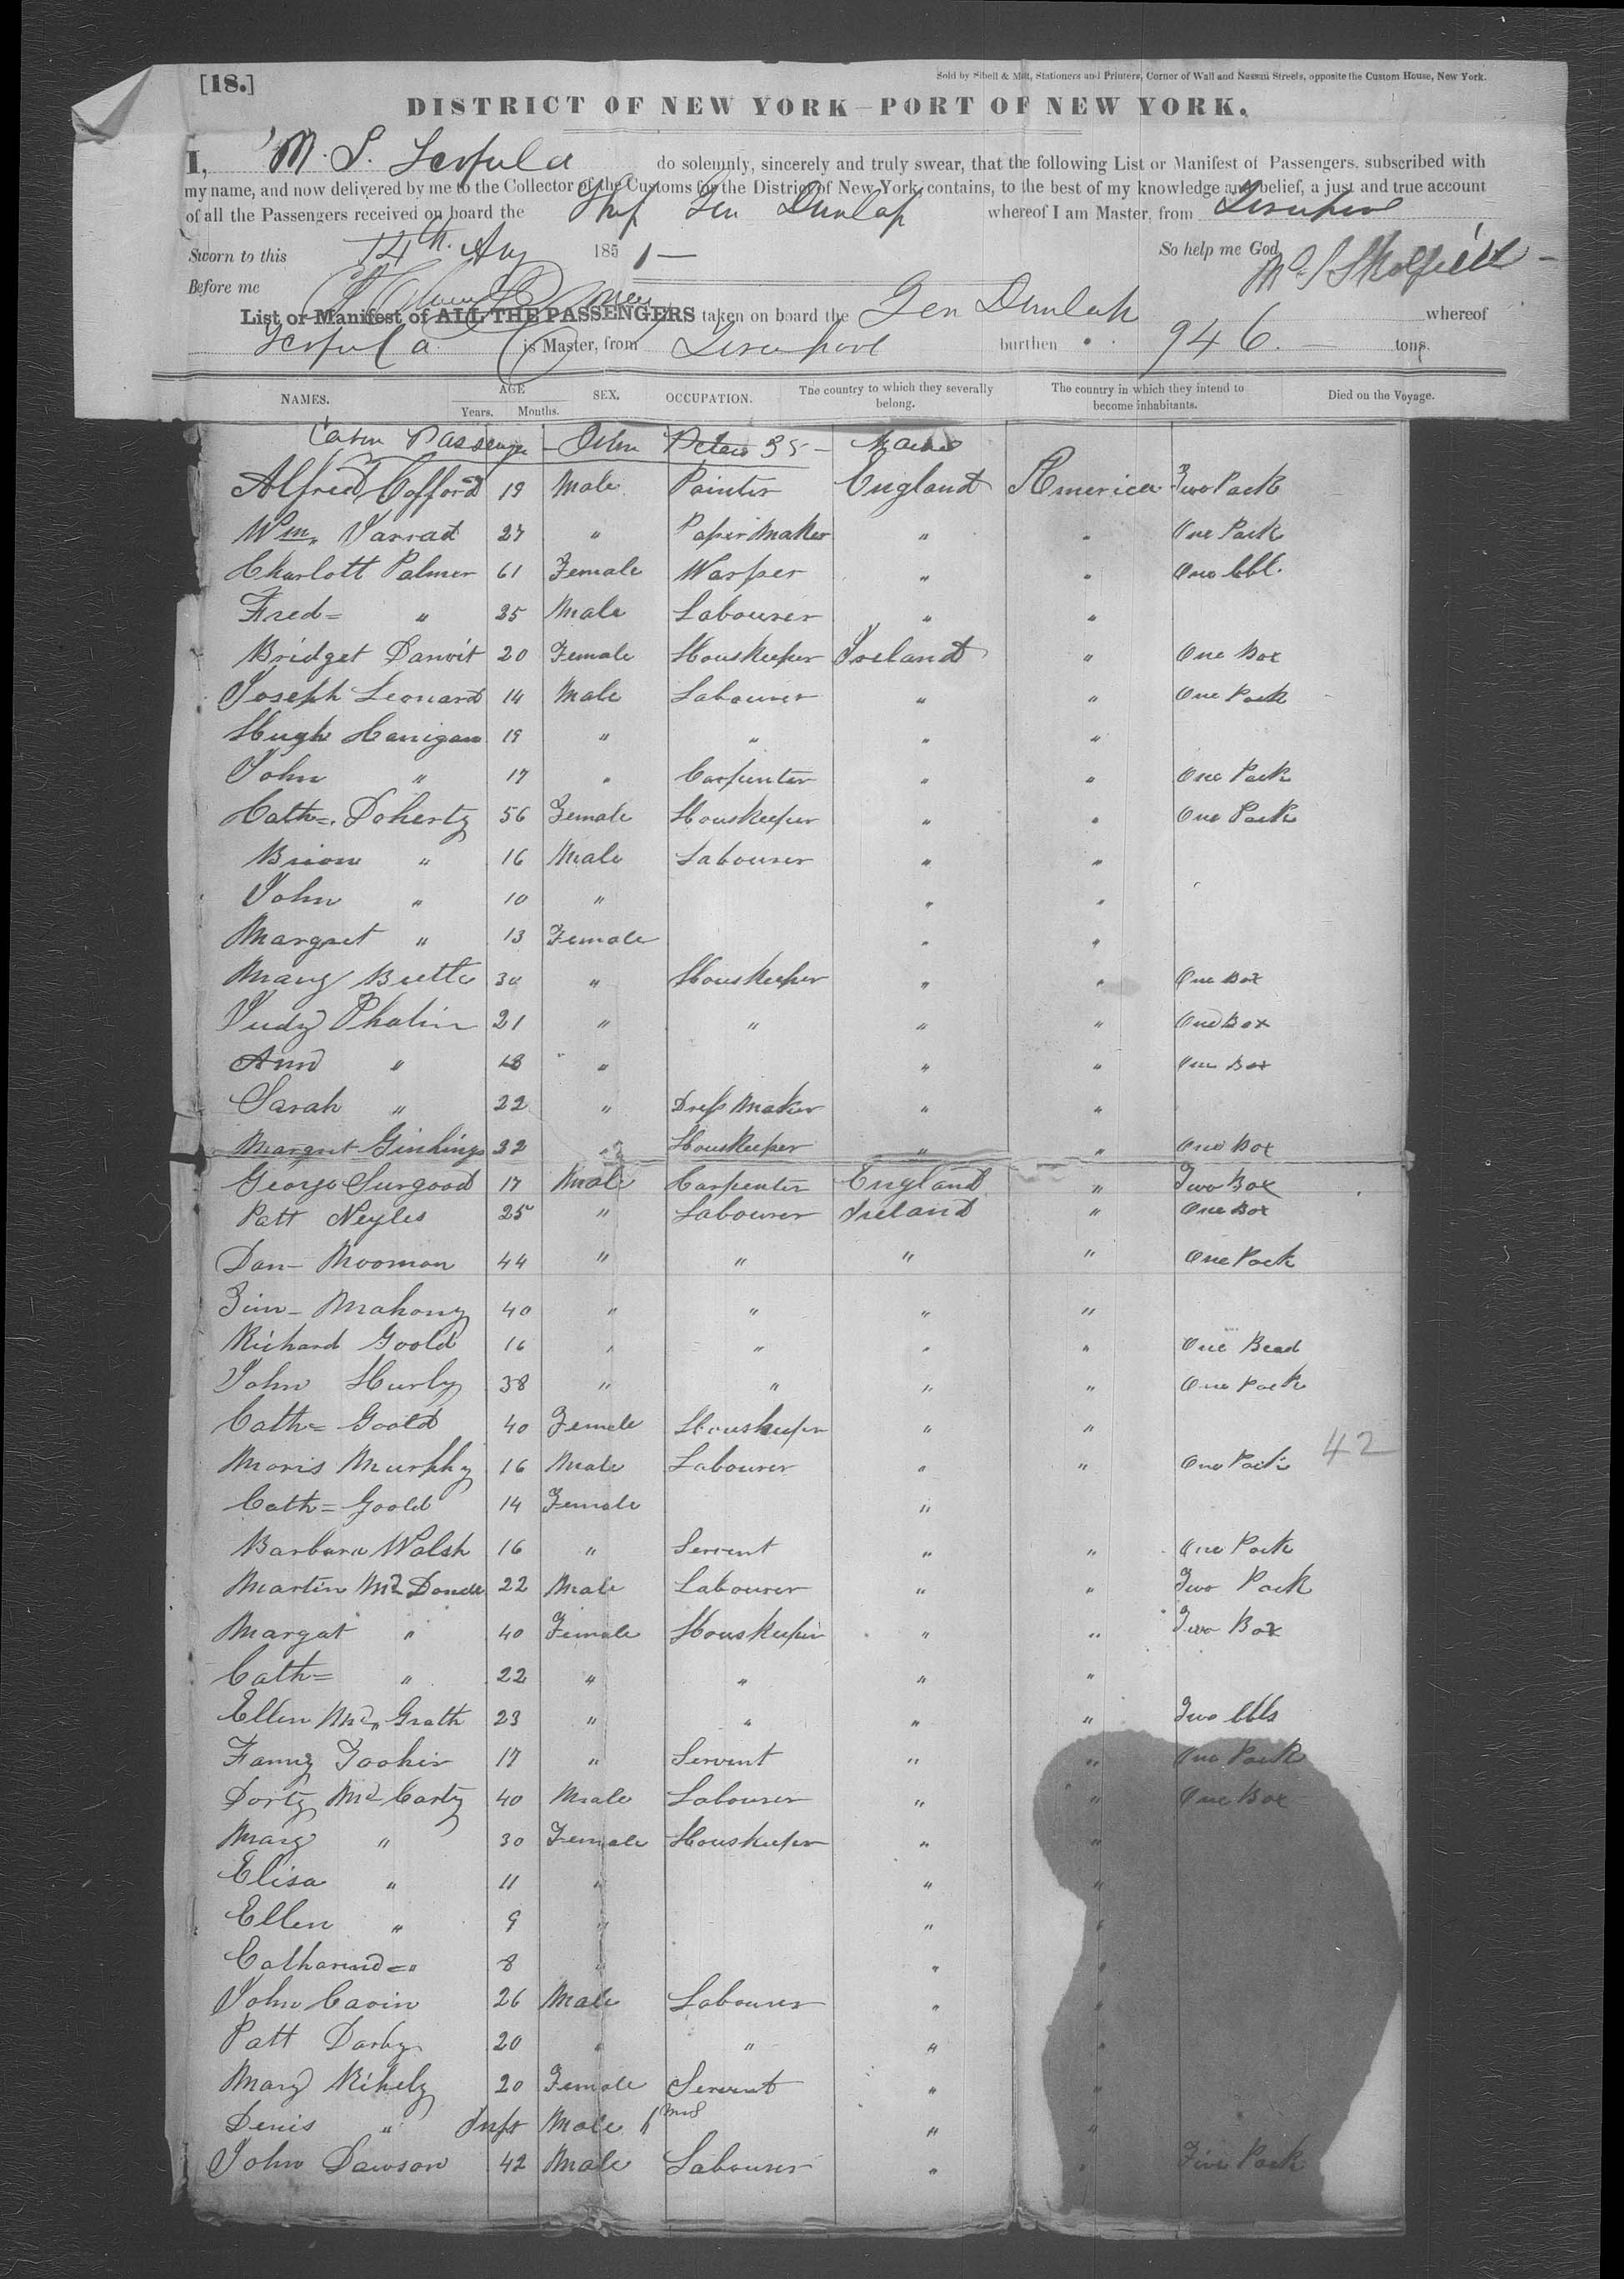 [18.]
Sold by Sibell & Mott, Stationers and Printers, Corner of Wall and Nassau Streets, opposite the Custom House, New York.
DISTRICT OF NEW YORK—PORT OF NEW YORK.
I, M. S. do solemnly, sincerely and truly swear, that the following List or Manifest of Passengers, subscribed with
my name, and now delivered by me to the Collector of the Customs for the District of New York, contains, to the best of my knowledge and belief, a just and true account
of all the Passengers received on board the Ship Gen Dunlap whereof I am Master, from Liverpool
Sworn to this 14th Aug 1851— So help me God,
Before me
List or Manifest of ALL THE PASSENGERS taken on board the Gen Dunlap whereof
is Master, from Liverpool burthen 946. tons.
NAMES. AGE Years. Months. SEX. OCCUPATION. The country to which they severally belong. The country in which they intend to become inhabitants. Died on the Voyage.
Cabin Passenger - John Peters 35 -
Alfred Cofford 19 Male Painter England America Two Pack
Wm. Jarrad 27 " Paper Maker " " One Pack
Charlott Palmer 61 Female Warper " " One bbl.
Fred= " 25 Male Labourer " "
Bridget Danoit 20 Female Houskeeper Ireland " One Box
Joseph Leonard 14 Male Labourer " " One Pack
Hugh Hanigan 19 " " " "
John " 17 " Carpenter " " One Pack
Cath=. Doherty 56 Female Houskeeper " " One Pack
Brion " 16 Male Labourer " "
John " 10 " " "
Margret " 13 Female " "
Mary Butte 30 " Houskeeper " " One Box
Judy Phalin 21 " " " " One Box
Ann " 18 " " " One Box
Sarah " 22 " Dress Maker " "
Margret Ginkings 32 " Houskeeper " " One Box
George Surgood 17 Male Carpenter England " Two Box
Patt Neyles 25 " Labourer Ireland " One Box
Dan- Mooman 44 " " " " One Pack
Tim- Mahony 40 " " " "
Richard Goold 16 " " " " One Bead
John Hurly 38 " " " " One Pack
Cath= Goold 40 Female Houskeeper " "
42
Moris Murphy 16 Male Labourer " " One Pack
Cath= Goold 14 Female "
Barbara Walsh 16 " Servent " " One Pack
Martin Mc Donell 22 Male Labourer " " Two Pack
Margat " 40 Female Houskeeper " " Two Box
Cath= " 22 " " " "
Ellen Mc Grath 23 " " " " Two bbls
Fanny Tooher 17 " Servent " " One Pack
Dorty Mc Carty 40 Male Labourer " " One Box
Mary " 30 Female Houskeeper " "
Elisa " 11 " " "
Ellen " 9 " " "
Catharine= " 8 " " "
John Cavin 26 Male Labourer " "
Patt Darby 20 " " " "
Mary Rihely 20 Female Servent " "
Denis " Inft Male " "
John Dawson 42 Male Labourer " " Five Pack